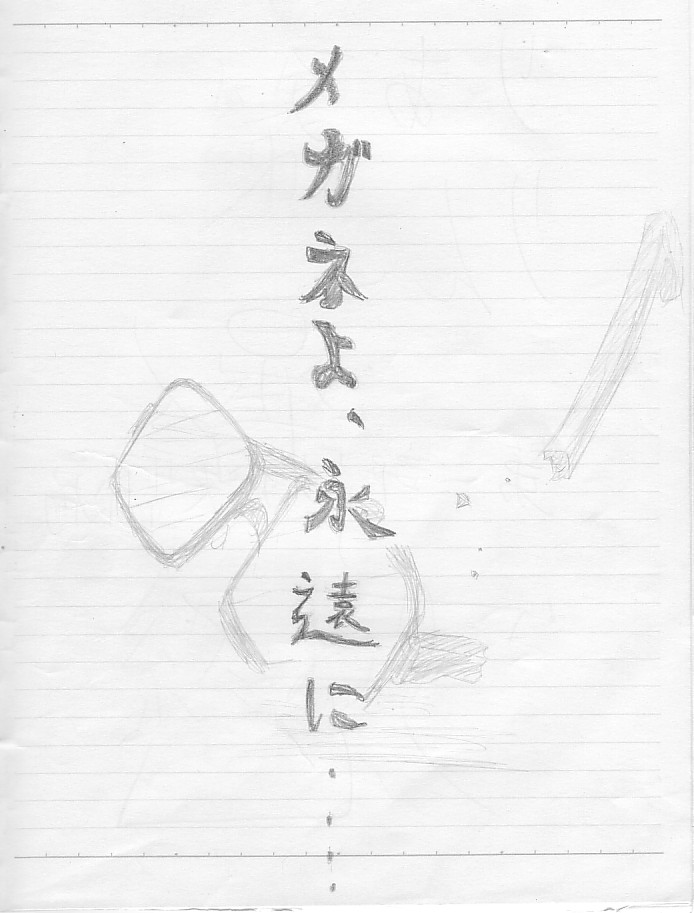 メガネよ、永遠に・・・・